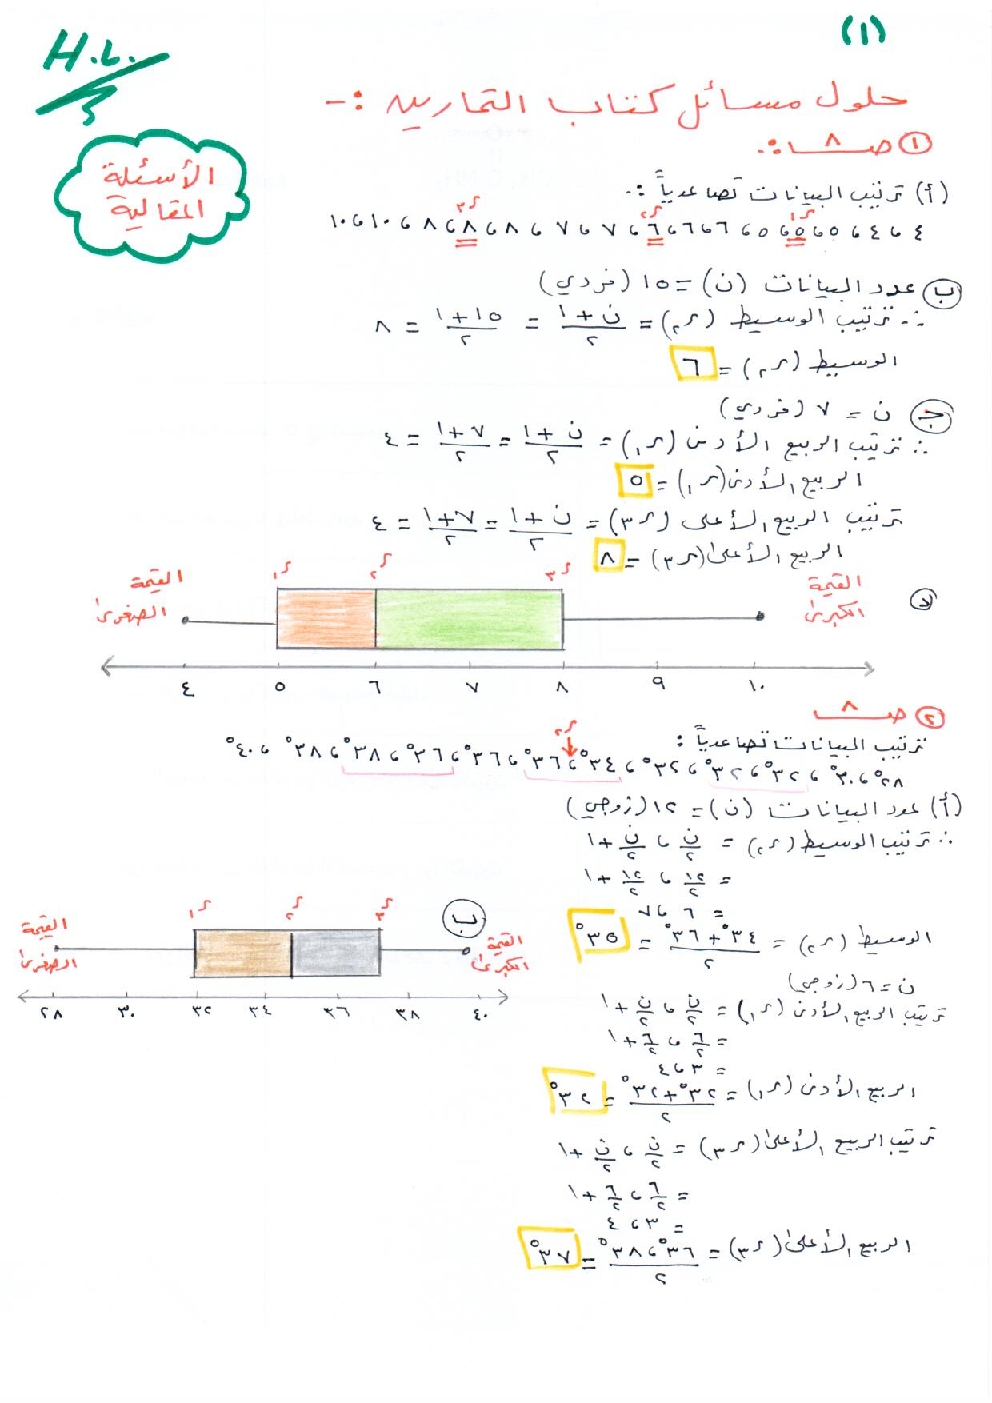 (١)
H.L.
حلول مسائل كتاب التمارين :-
الأسئلة
المقالية
① صـ ٨ :.
(أ) ترتيب البيانات تصاعدياً :.
ر١ ر٢ ر٣
٤ ، ٤ ، ٥ ، ٥ ، ٥ ، ٦ ، ٦ ، ٦ ، ٧ ، ٧ ، ٨ ، ٨ ، ٨ ، ١٠ ، ١٠
(ب) عدد البيانات (ن) = ١٥ (فردي)
∴ ترتيب الوسيط (ر٢) = (ن + ١)/٢ = (١٥ + ١)/٢ = ٨
الوسيط (ر٢) = ٦
(جـ) ن = ٧ (فردي)
∴ ترتيب الربيع الأدنى (ر١) = (ن + ١)/٢ = (٧ + ١)/٢ = ٤
الربيع الأدنى (ر١) = ٥
ترتيب الربيع الأعلى (ر٣) = (ن + ١)/٢ = (٧ + ١)/٢ = ٤
الربيع الأعلى (ر٣) = ٨
(د)
القيمة الكبرى ر٣ ر٢ ر١ القيمة الصغرى
٤ ٥ ٦ ٧ ٨ ٩ ١٠
② صـ ٨
ترتيب البيانات تصاعدياً :
ر٢
٢٨° ، ٣٠° ، ٣٢° ، ٣٢° ، ٣٢° ، ٣٤° ، ٣٦° ، ٣٦° ، ٣٦° ، ٣٨° ، ٣٨° ، ٤٠°
(أ) عدد البيانات (ن) = ١٢ (زوجي)
∴ ترتيب الوسيط (ر٢) = ن/٢ ، ن/٢ + ١
= ١٢/٢ ، ١٢/٢ + ١
= ٦ ، ٧
الوسيط (ر٢) = (٣٤ + ٣٦°)/٢ = ٣٥°
ن = ٦ (زوجي)
ترتيب الربيع الأدنى (ر١) = ن/٢ ، ن/٢ + ١
= ٦/٢ ، ٦/٢ + ١
= ٣ ، ٤
الربيع الأدنى (ر١) = (٣٢° + ٣٢°)/٢ = ٣٢°
ترتيب الربيع الأعلى (ر٣) = ن/٢ ، ن/٢ + ١
= ٦/٢ ، ٦/٢ + ١
= ٣ ، ٤
الربيع الأعلى (ر٣) = (٣٦° ، ٣٨°)/٢ = ٣٧°
(ب)
القيمة الكبرى ر٣ ر٢ ر١ القيمة الصغرى
٢٨ ٣٠ ٣٢ ٣٤ ٣٦ ٣٨ ٤٠